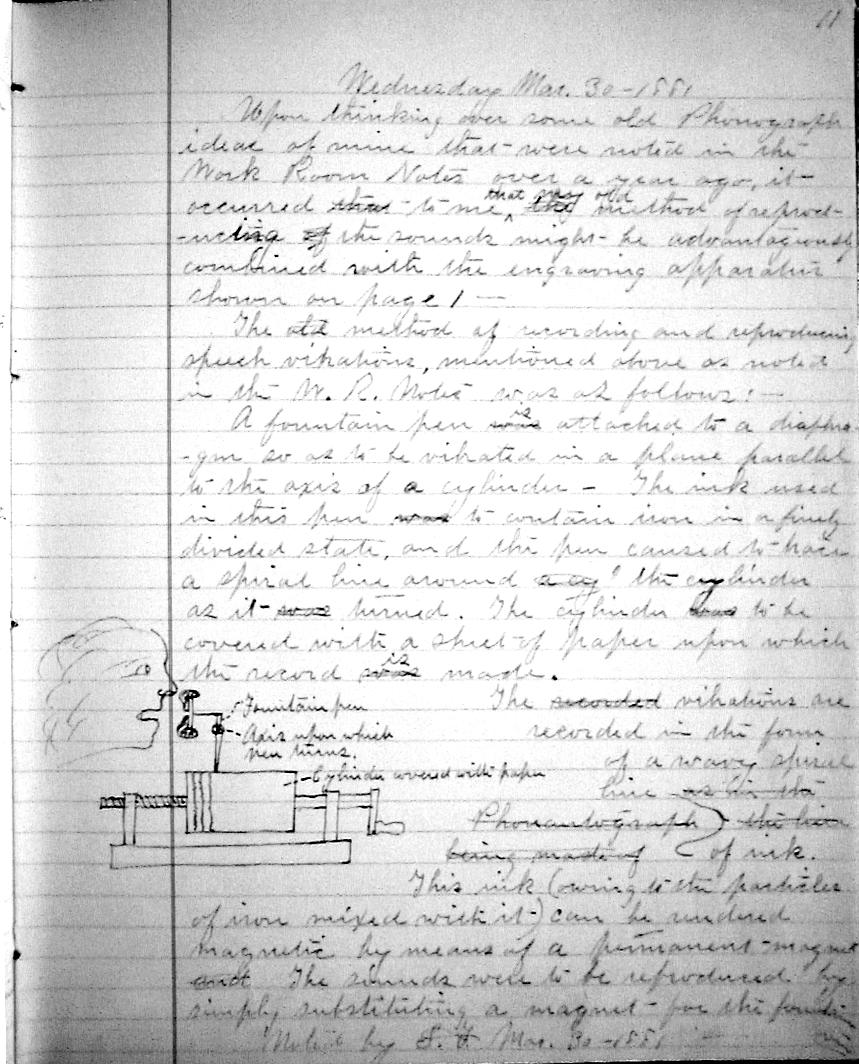 11
Wednesday Mar. 30-1881
Upon thinking over some old Phonograph
ideas of mine that were noted in the
Work Room Notes over a year ago, it
occurred that to me that my old the method of reprod-
-ucting of the sounds might be advantageously
combined with the engraving apparatus
shown on page 1 —
The old method of recording and reproducing
speech vibrations, mentioned above as noted
in the W. R. Notes was as follows: —
A fountain pen was is attached to a diaphra-
-gm so as to be vibrated in a plane parallel
to the axis of a cylinder — The ink used
in this pen was to contain iron in a finely
divided state, and the pen caused to trace
a spiral line around a cy the cylinder
as it was turned. The cylinder was to be
covered with a sheet of paper upon which
the record was is made.
Fountain pen
Axis upon which
pen turns.
Cylinder covered with paper
The recorded vibrations are
recorded in the form
of a wavy spiral
line as in the
Phonautograph the line
being made of of ink.
This ink (owing to the particles
of iron mixed with it) can be rendered
magnetic by means of a permanent magnet
and The sounds were to be reproduced by
simply substituting a magnet for the
by S. T. Mar. 30-1881